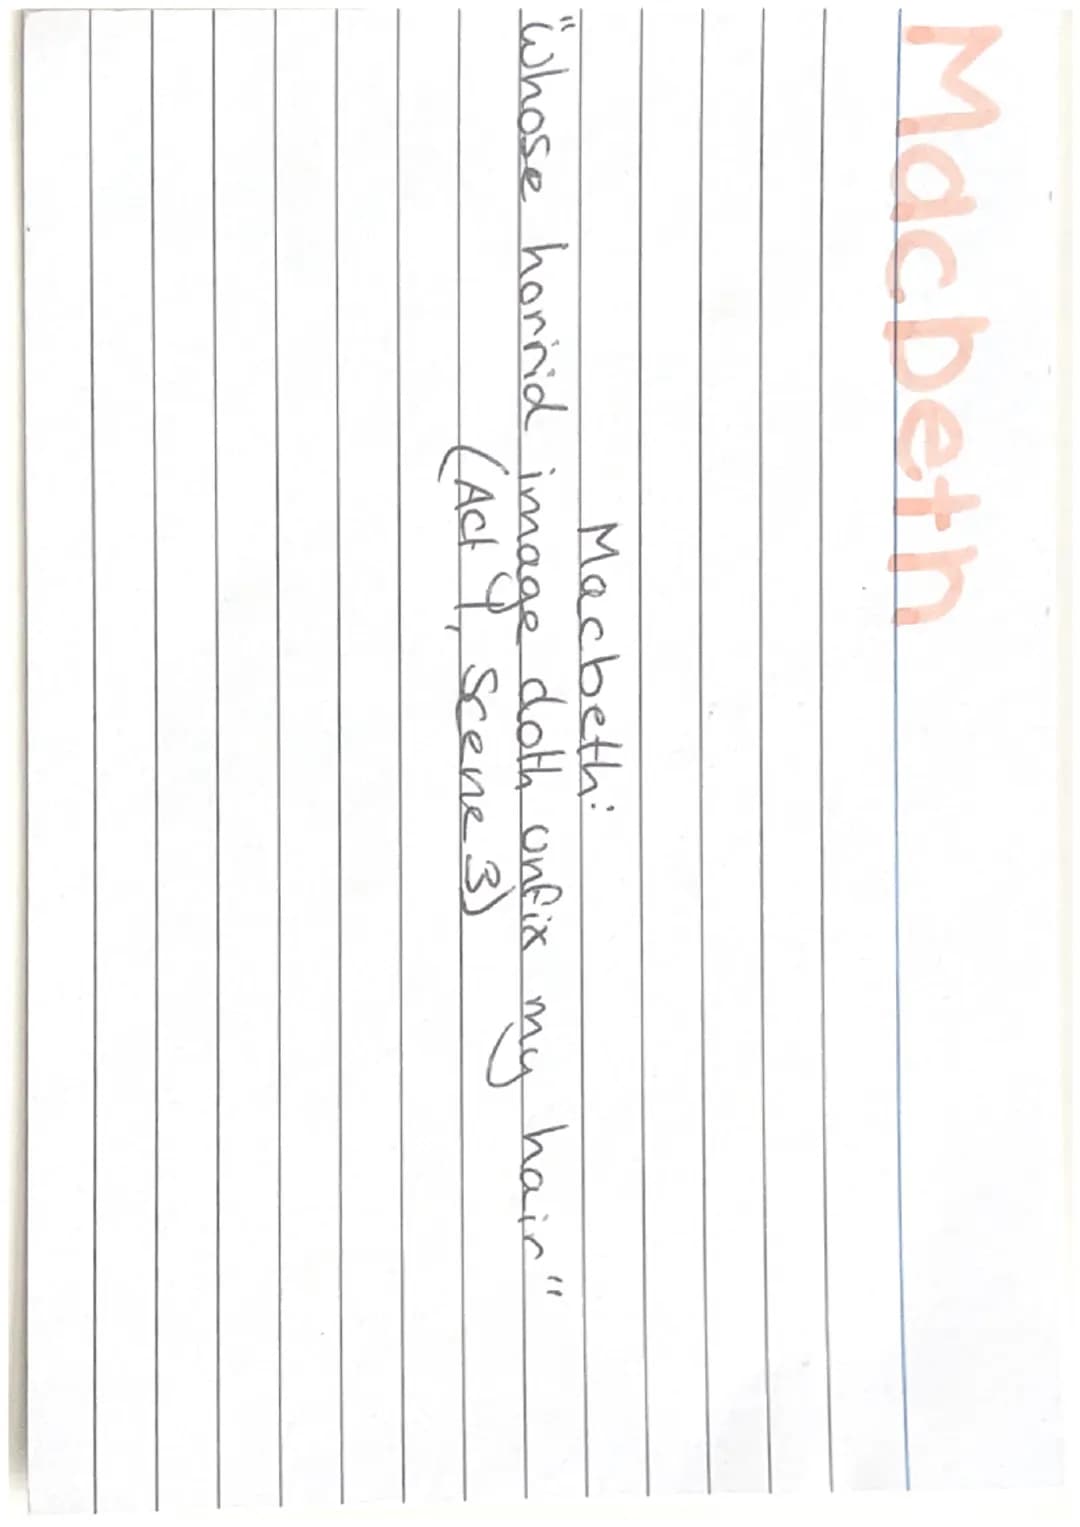 Macbeth
Macbeth:
"Whose horrid image doth unfix my hair"
(Act 1, Scene 3)